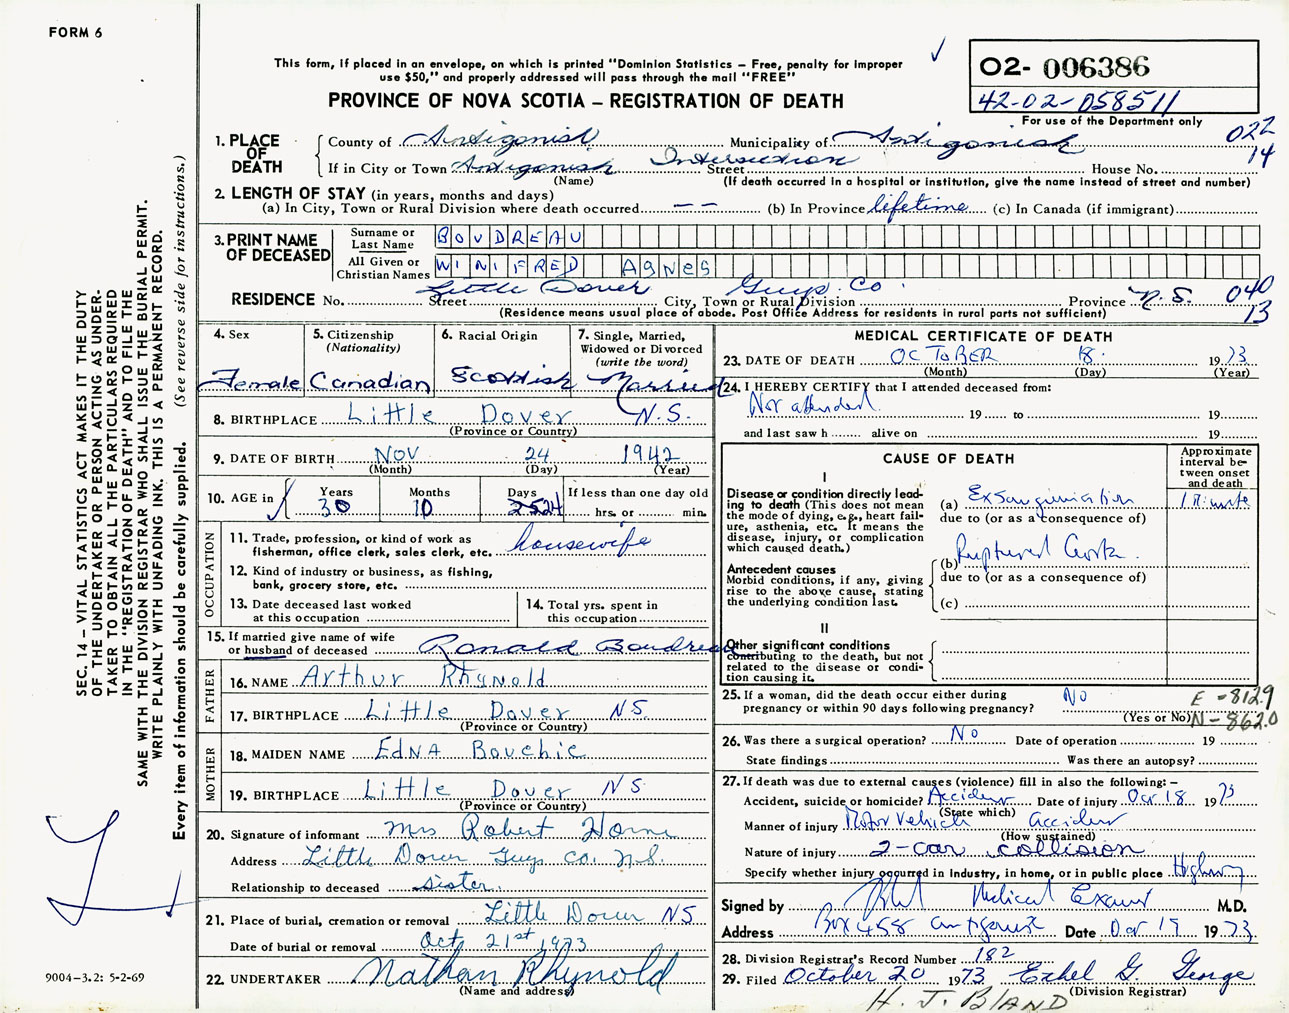 FORM 6
This form, if placed in an envelope, on which is printed "Dominion Statistics – Free, penalty for improper
use $50," and properly addressed will pass through the mail "FREE"
PROVINCE OF NOVA SCOTIA – REGISTRATION OF DEATH
02- 006386
42-02-058511
For use of the Department only
022
14
1. PLACE OF DEATH
County of Antigonish Municipality of Antigonish
If in City or Town Antigonish Intersection Street House No.
(Name) (If death occurred in a hospital or institution, give the name instead of street and number)
2. LENGTH OF STAY (in years, months and days)
(a) In City, Town or Rural Division where death occurred -- (b) In Province lifetime (c) In Canada (if immigrant)
3. PRINT NAME OF DECEASED
Surname or Last Name BOUDREAU
All Given or Christian Names WINIFRED AGNES
RESIDENCE No. Little Dover Street Guys Co. City, Town or Rural Division Province N.S. 040
13
(Residence means usual place of abode. Post Office Address for residents in rural parts not sufficient)
4. Sex
Female
5. Citizenship
(Nationality)
Canadian
6. Racial Origin
Scottish
7. Single, Married,
Widowed or Divorced
(write the word)
Married
8. BIRTHPLACE Little Dover N.S.
(Province or Country)
9. DATE OF BIRTH Nov 24 1942
(Month) (Day) (Year)
10. AGE in
Years Months Days If less than one day old
30 10 24 hrs. or min.
OCCUPATION
11. Trade, profession, or kind of work as
fisherman, office clerk, sales clerk, etc. housewife
12. Kind of industry or business, as fishing,
bank, grocery store, etc.
13. Date deceased last worked
at this occupation
14. Total yrs. spent in
this occupation
15. If married give name of wife
or husband of deceased Ronald Boudreau
FATHER
16. NAME Arthur Rhynold
17. BIRTHPLACE Little Dover NS.
(Province or Country)
MOTHER
18. MAIDEN NAME Edna Bouchie
19. BIRTHPLACE Little Dover NS
(Province or Country)
20. Signature of informant Mrs Robert Horne
Address Little Dover Guys Co. N.S.
Relationship to deceased sister
21. Place of burial, cremation or removal Little Dover NS
Date of burial or removal Oct 21st 1973
22. UNDERTAKER Nathan Rhynold
(Name and address)
MEDICAL CERTIFICATE OF DEATH
23. DATE OF DEATH OCTOBER 18 1973
(Month) (Day) (Year)
24. I HEREBY CERTIFY that I attended deceased from:
Not attended 19 to 19
and last saw h alive on 19
CAUSE OF DEATH
Approximate interval between onset and death
I
Disease or condition directly leading to death (This does not mean the mode of dying, e.g., heart failure, asthenia, etc. It means the disease, injury, or complication which caused death.)
(a) Exsanguination 1 minute
due to (or as a consequence of)
(b) Ruptured Aorta
due to (or as a consequence of)
(c)
Antecedent causes
Morbid conditions, if any, giving rise to the above cause, stating the underlying condition last.
II
Other significant conditions
contributing to the death, but not related to the disease or condition causing it.
25. If a woman, did the death occur either during
pregnancy or within 90 days following pregnancy? No
(Yes or No)
E-812.9
N-862.0
26. Was there a surgical operation? No Date of operation 19
State findings Was there an autopsy?
27. If death was due to external causes (violence) fill in also the following: –
Accident, suicide or homicide? Accident Date of injury Oct 18 1973
(State which)
Manner of injury Motor Vehicle accident
(How sustained)
Nature of injury 2-car collision
Specify whether injury occurred in industry, in home, or in public place Highway
Signed by Medical Examr M.D.
Address Box 458 Antigonish Date Oct 19 1973
28. Division Registrar's Record Number 182
29. Filed October 20 1973 Ethel G. George
(Division Registrar)
H. J. BLAND
SEC. 14 – VITAL STATISTICS ACT MAKES IT THE DUTY
OF THE UNDERTAKER OR PERSON ACTING AS UNDER-
TAKER TO OBTAIN ALL THE PARTICULARS REQUIRED
IN THE "REGISTRATION OF DEATH" AND TO FILE THE
SAME WITH THE DIVISION REGISTRAR WHO SHALL ISSUE THE BURIAL PERMIT.
WRITE PLAINLY WITH UNFADING INK. THIS IS A PERMANENT RECORD.
Every item of information should be carefully supplied. (See reverse side for instructions.)
9004-3.2: 5-2-69